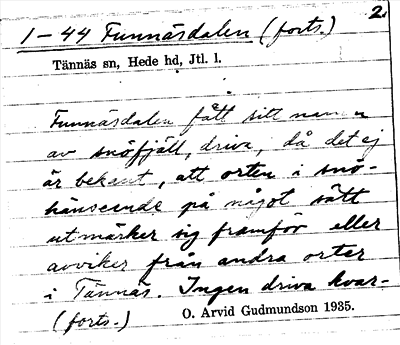 2.
1-44 Funnäsdalen (forts.)
Tännäs sn, Hede hd, Jtl. l.
Funnäsdalen fått sitt namn
av snöfjäll, driva, då det ej
är bekant, att orten i snö-
hänseende på något sätt
utmärker sig framför eller
avviker från andra orter
i Tännäs. Ingen driva kvar-
(forts.)
O. Arvid Gudmundson 1935.